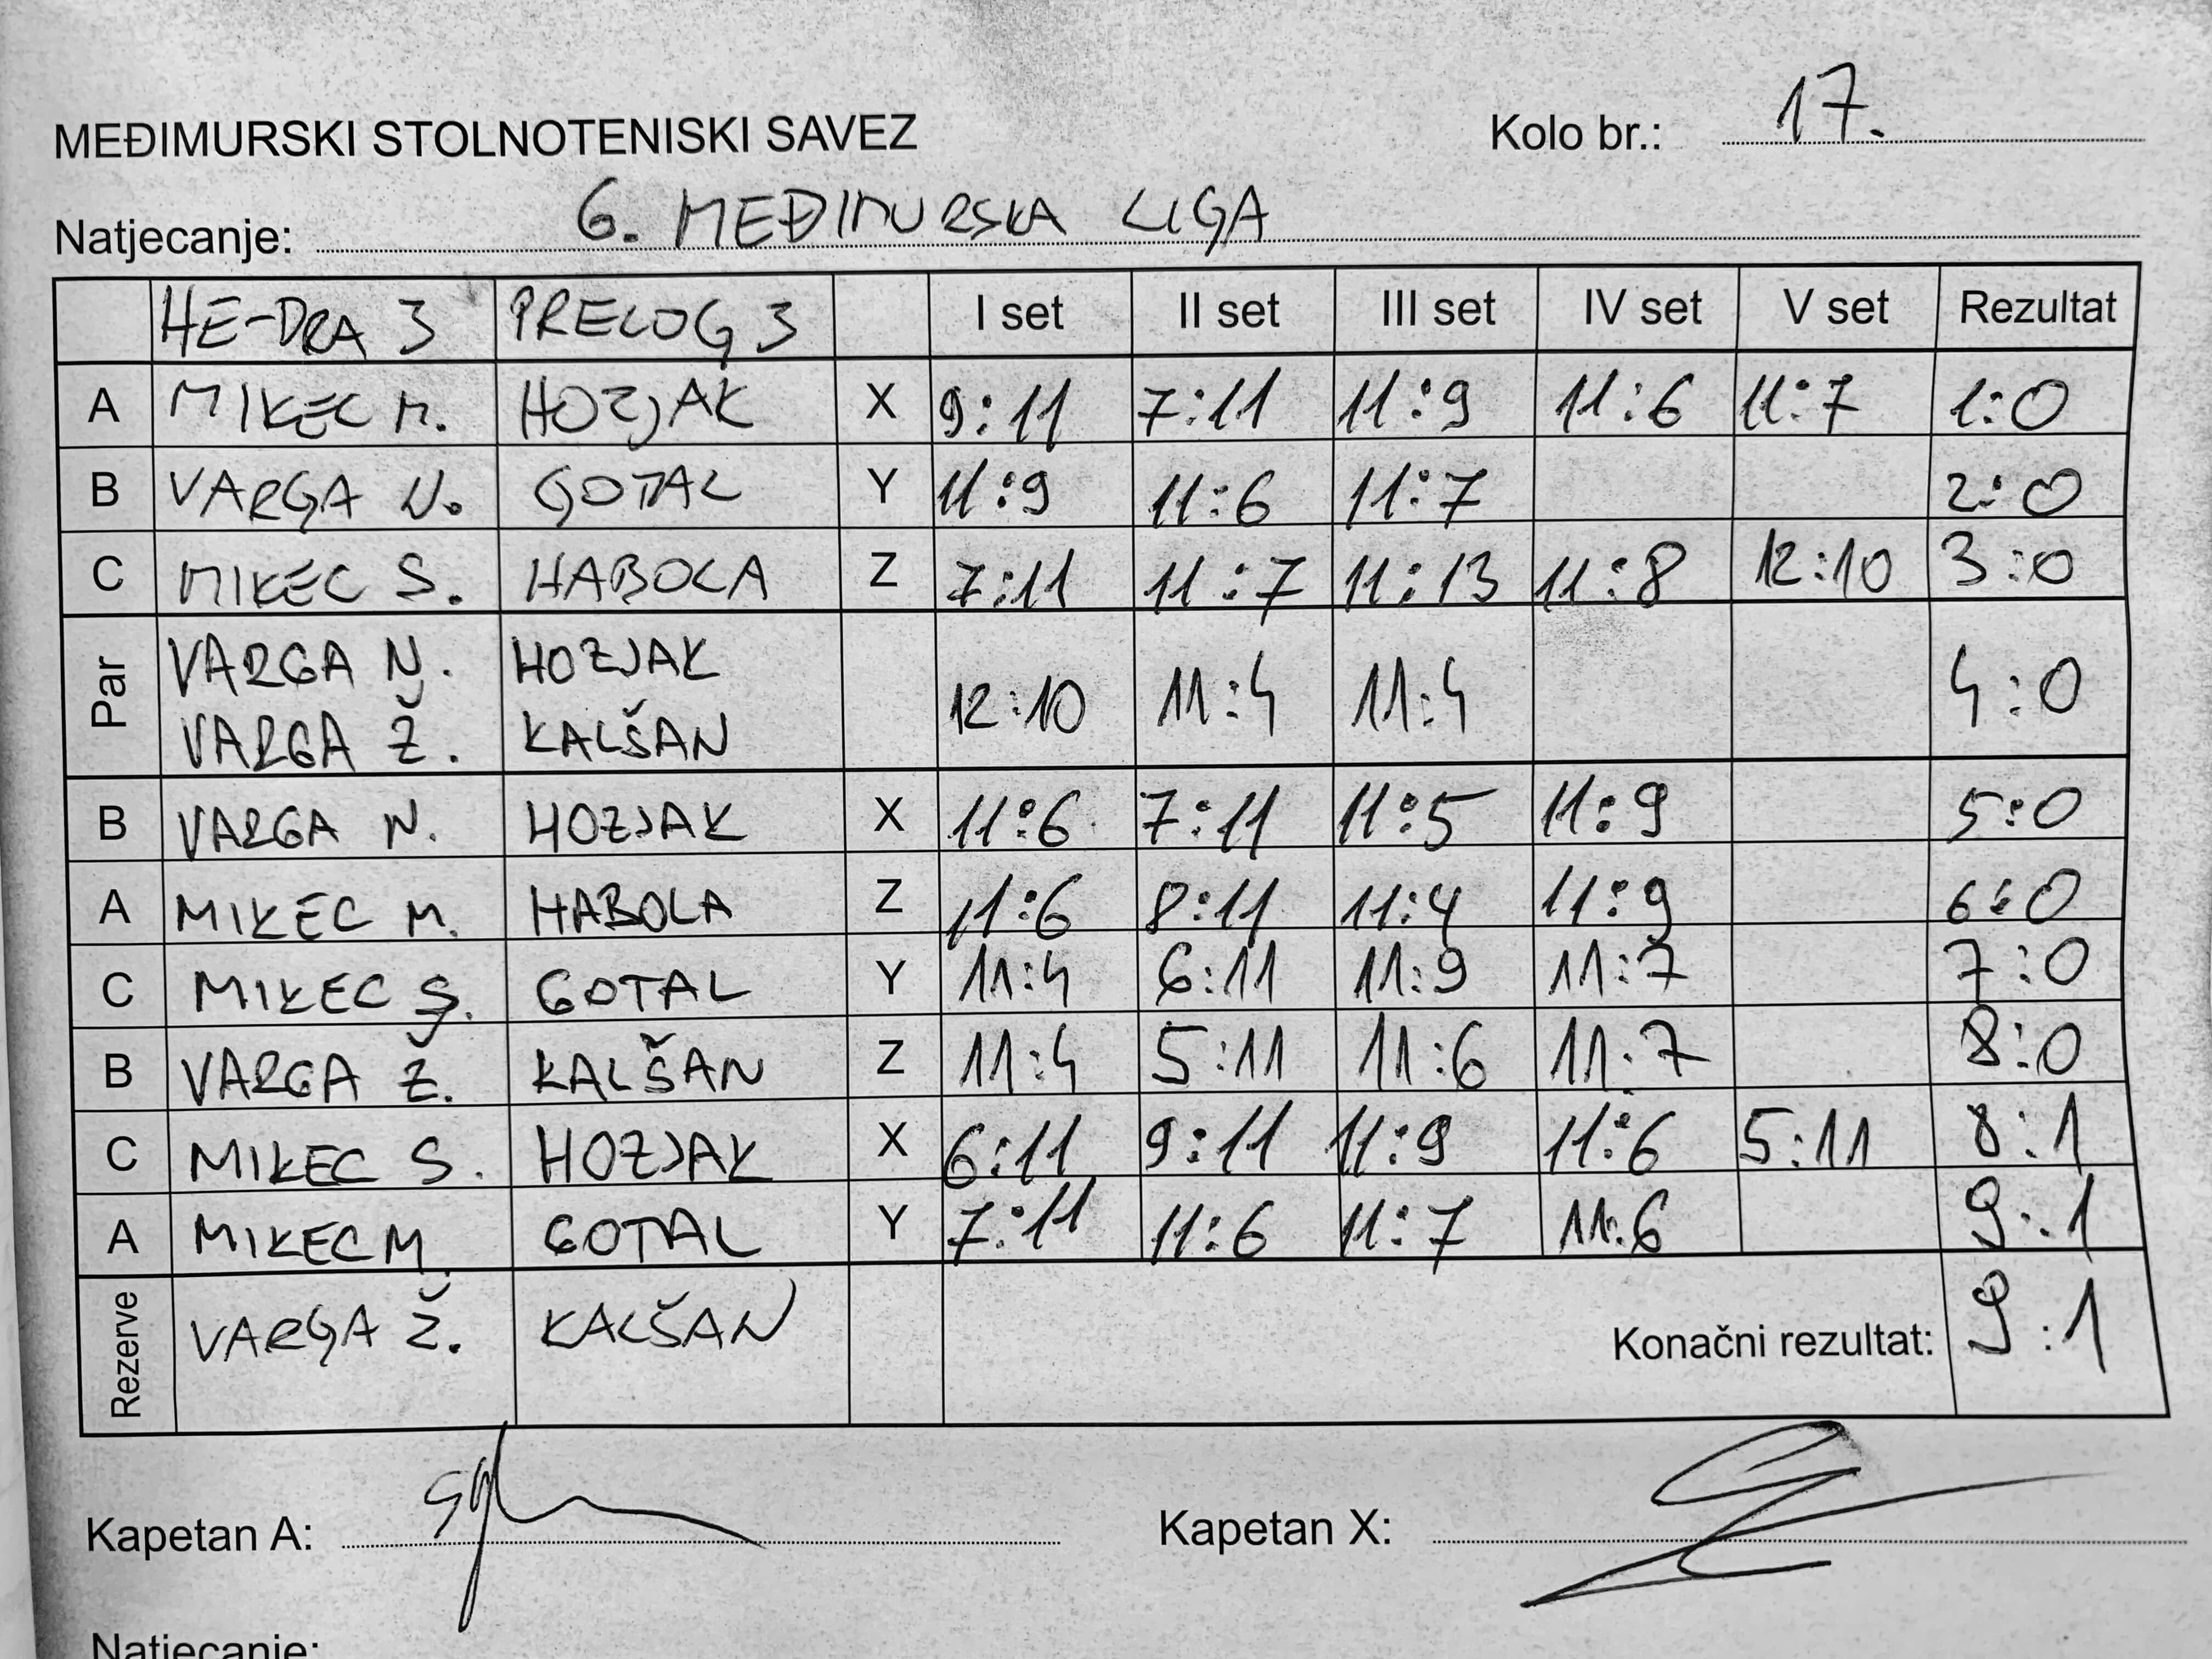 MEĐIMURSKI STOLNOTENISKI SAVEZ Kolo br.: 17.
Natjecanje: 6. MEĐIMURSKA LIGA
HE-DRA 3 PRELOG 3 I set II set III set IV set V set Rezultat
A MIKEC M. HOZJAK X 9:11 7:11 11:9 11:6 11:7 1:0
B VARGA N. GOTAL Y 11:9 11:6 11:7 2:0
C MIKEC S. HABOLA Z 7:11 11:7 11:13 11:8 12:10 3:0
Par VARGA N. HOZJAK 12:10 11:4 11:4 4:0
VARGA Ž. KALŠAN
B VARGA N. HOZJAK X 11:6 7:11 11:5 11:9 5:0
A MIKEC M. HABOLA Z 11:6 8:11 11:4 11:9 6:0
C MIKEC S. GOTAL Y 11:4 6:11 11:9 11:7 7:0
B VARGA Ž. KALŠAN Z 11:4 5:11 11:6 11:7 8:0
C MIKEC S. HOZJAK X 6:11 9:11 11:9 11:6 5:11 8:1
A MIKEC M. GOTAL Y 7:11 11:6 11:7 11:6 9:1
Rezerve VARGA Ž. KALŠAN Konačni rezultat: 9:1
Kapetan A: Kapetan X:
Natjecanje: